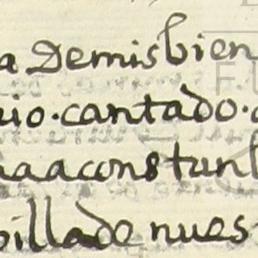 a Demis bien
io·cantado·
a a constun
pilla de nues